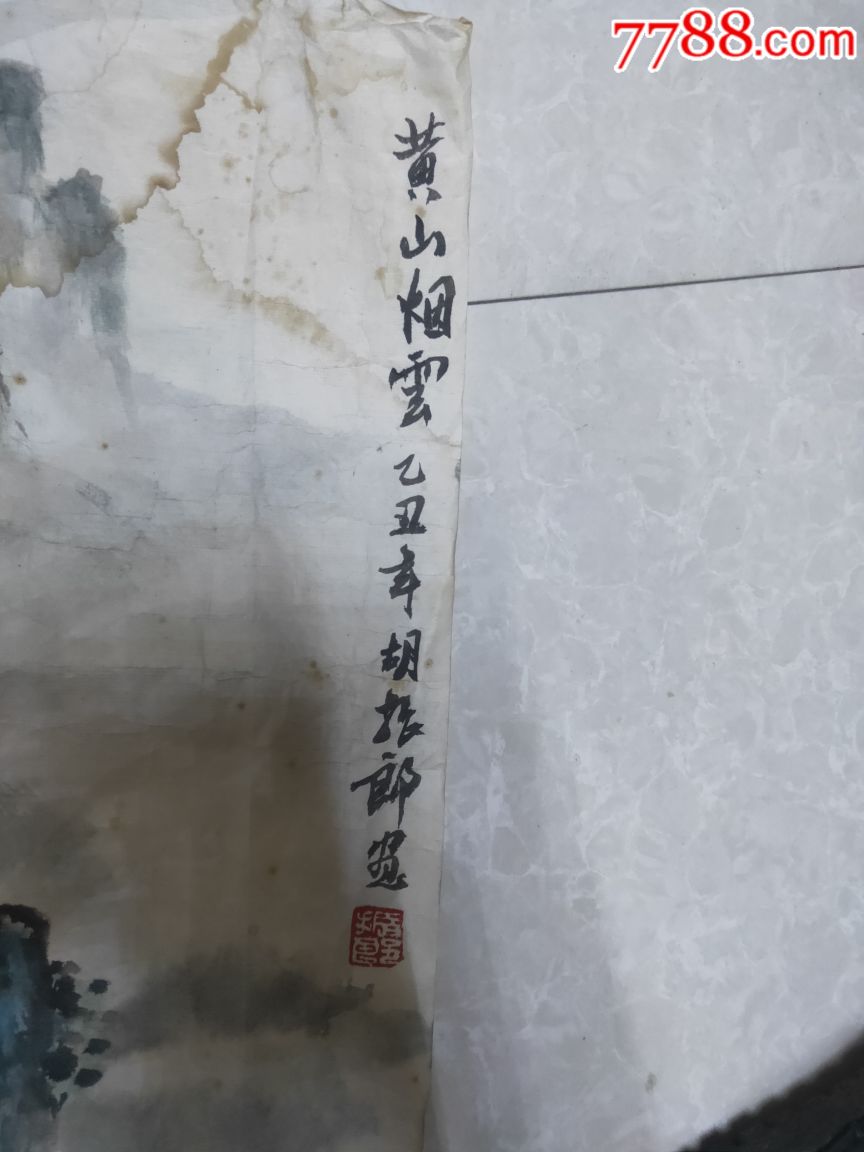 7788.com
黄山烟雲乙丑年胡振郎画